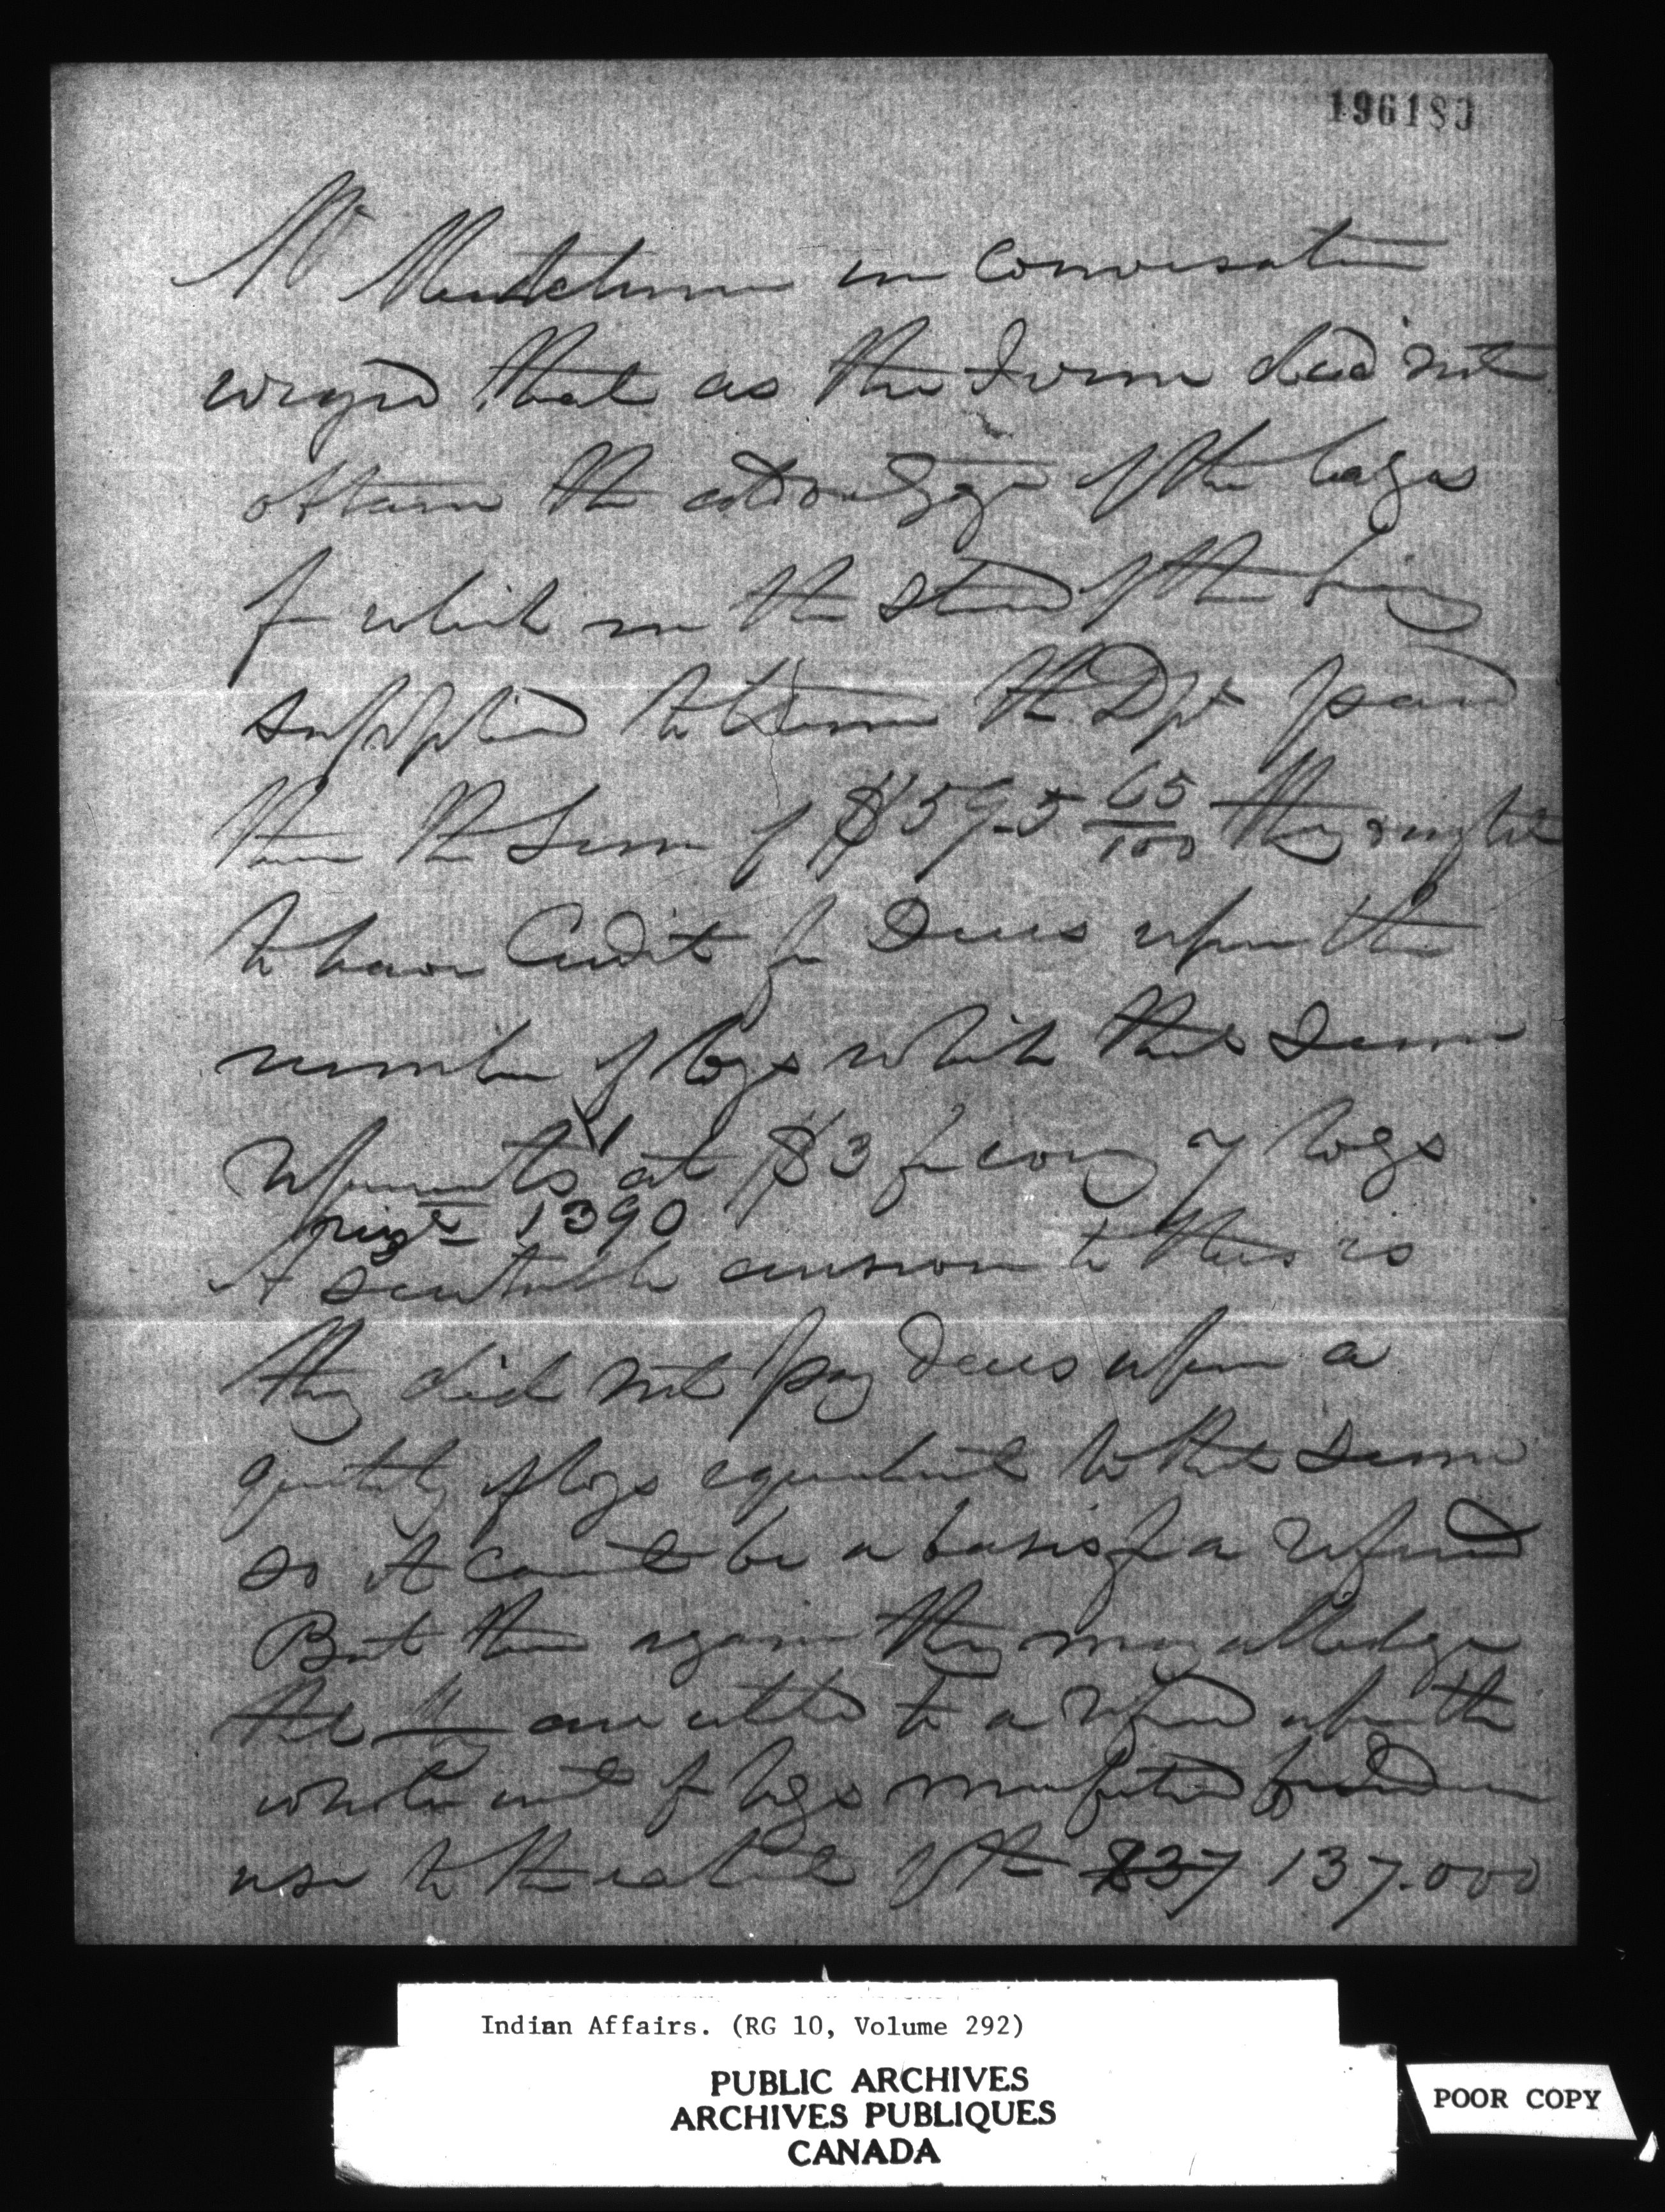 196180
Mr in conversation
urged that as the Firm did not
obtain the advantage of the logs
for which on the strength of their being
supplied to them the Dpt paid
them the Sum of $595 65/100 they ought
to have Credit for Dues upon the
number of logs which that Sum
represents at $3 for every 7 logs
1390
A suitable answer to this is
they did not pay dues upon a
quantity of logs equivalent to that Sum
so it cannot be a basis for a refund
But then again they may alledge
that they are entitled to a refund upon the
of logs manufactured
use to the extent of the 837 137.000
Indian Affairs. (RG 10, Volume 292)
PUBLIC ARCHIVES
ARCHIVES PUBLIQUES
CANADA
POOR COPY